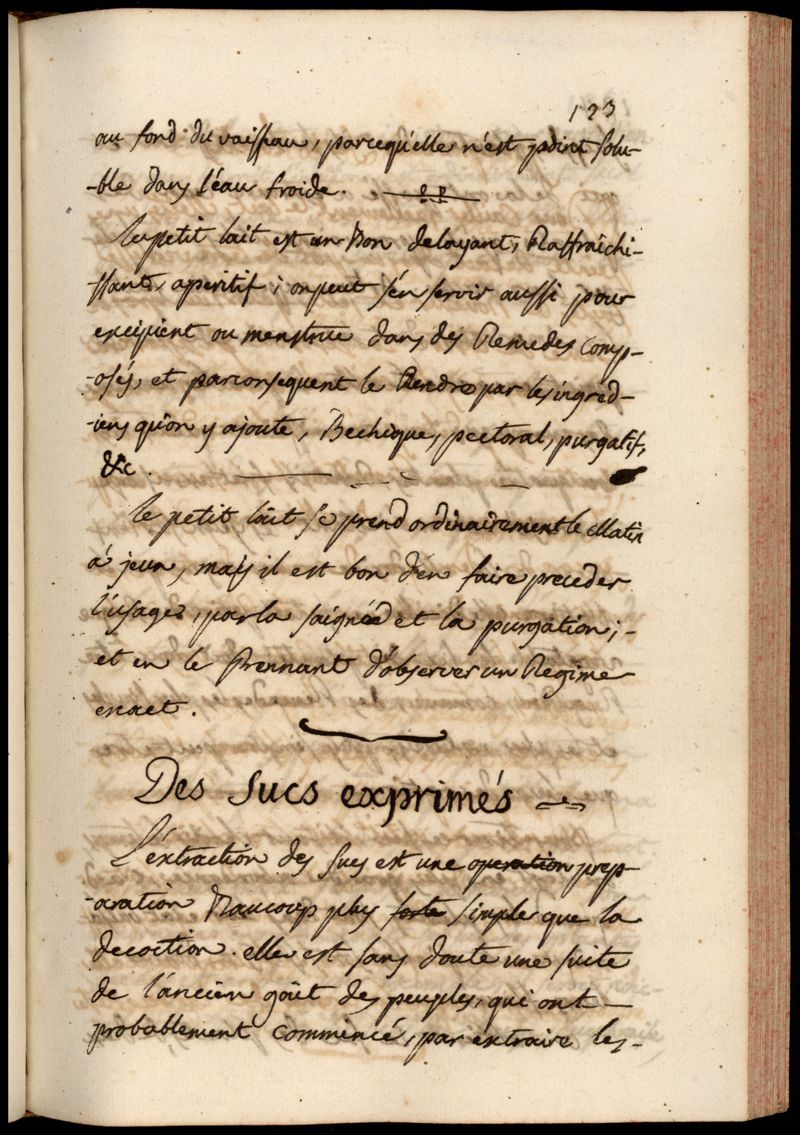 123
au fond du vaisseau, parcequ'elle n'est point solu-
-ble dans l'eau froide.
Le petit lait est un Bon delayant, Raffraichi-
-ssant, aperitif; on peut s'en servir aussi pour
excipient ou menstrue dans des Remedes comp-
-osés, et parconsequent le Rendre par les ingred-
-iens qu'on y ajoute, Bechique, pectoral, purgatif,
&c.
le petit lait se prend ordinairement le Matin
a jeun, mais il est bon d'en faire preceder
l'usage, par la saignée et la purgation; -
et en le Prennant d'observer un Regime
exact.
Des Sucs exprimés
L'extraction des sucs est une operation prep-
-aration Baucoup plus forte simple que la
decoction. elle est sans doute une suite
de l'ancien goût des peuples, qui ont -
probablement commencé, par extraire les -